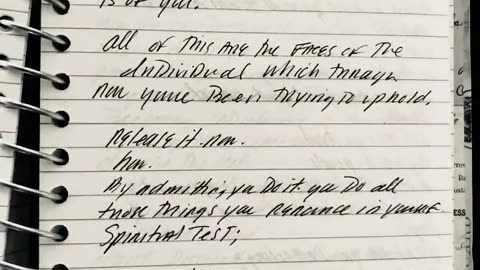 is of you.
all of this are the faces of the
individual which through
now you've been trying to uphold.
Release it now.
how.
By admitting you do it. you do all
those things you renounce in your
Spiritual Test;
ESS